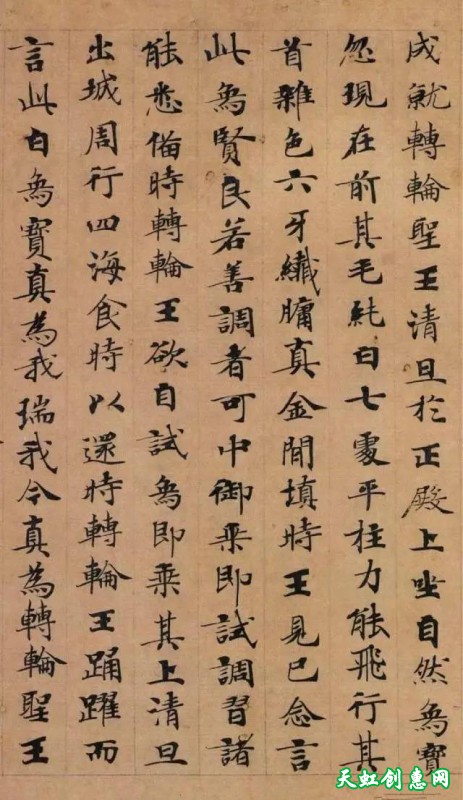 成就轉輪聖王清旦於正殿上坐自然象寶
忽現在前其毛純白七處平柱力能飛行其
首雜色六牙纖𦟛真金間填時王見已念言
此象賢良若善調者可中御乘即試調習諸
能悉俻時轉輪王欲自試象即乘其上清旦
出城周行四海食時以還時轉輪王踊躍而
言此白象寶真為我瑞我今真為轉輪聖王
天虹创惠网